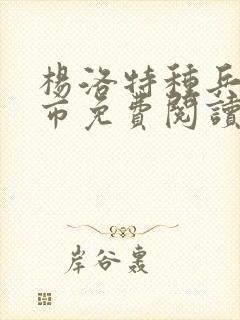 楊洛特種兵
币免費閱讀
岸谷轟